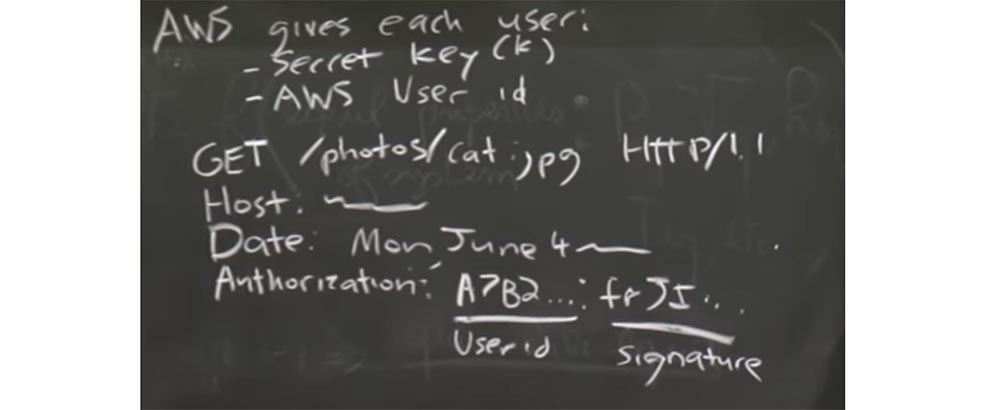 AWS gives each user:
- Secret key (k)
- AWS User id
GET /photos/cat.jpg HTTP/1.1
Host:
Date: Mon June 4
Authorization: A7B2...: frJI...
User id
signature